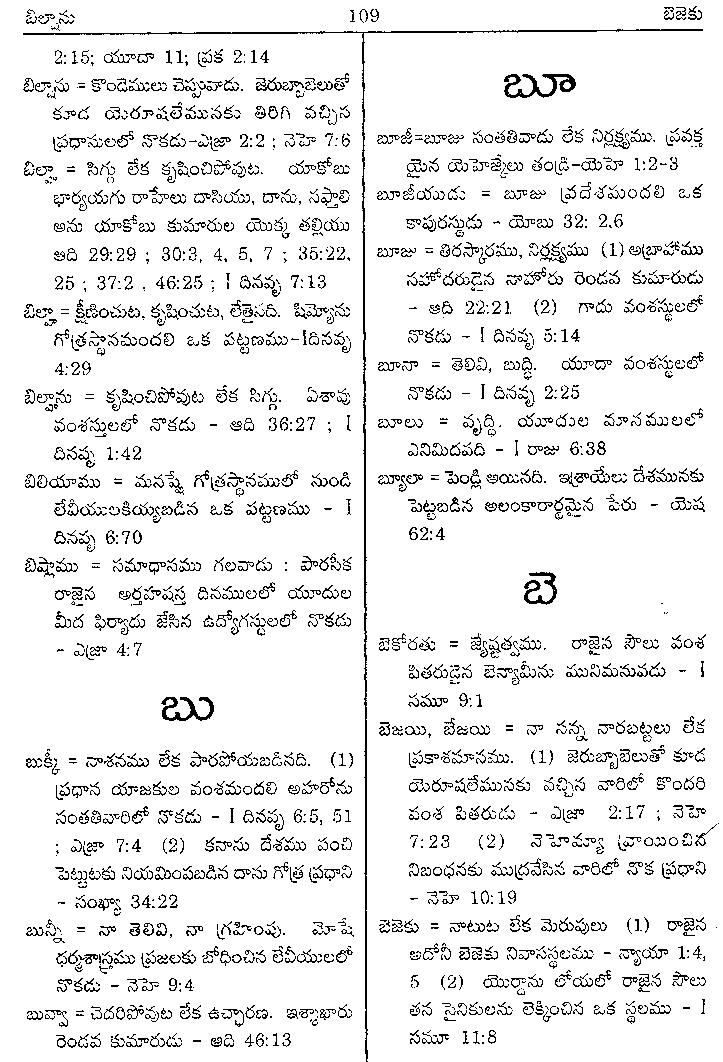 బిల్షాను
109
బెజెకు
2:15; యూదా 11; ప్రక 2:14
బిల్షాను = కొండెములు చెప్పువాడు. జెరుబ్బాబెలుతో
కూడ యెరూషలేమునకు తిరిగి వచ్చిన
ప్రధానులలో నొకడు-ఎజ్రా 2:2 ; నెహె 7:6
బిల్హా = సిగ్గు లేక కృషించిపోవుట. యాకోబు
భార్యయగు రాహేలు దాసియు, దాను, నఫ్తాలి
అను యాకోబు కుమారుల యొక్క తల్లియు
ఆది 29:29 ; 30:3, 4, 5, 7 ; 35:22,
25 ; 37:2 , 46:25 ; I దినవృ 7:13
బిల్హా = క్షీణించుట, కృషించుట, లేతైనది. షిమ్యోను
గోత్రస్థానమందలి ఒక పట్టణము-Iదినవృ
4:29
బిల్హాను = కృషించిపోవుట లేక సిగ్గు. ఏశావు
వంశస్తులలో నొకడు - ఆది 36:27 ; I
దినవృ 1:42
బిలియాము = మనష్షే గోత్రస్థానములో నుండి
లేవీయులకియ్యబడిన ఒక పట్టణము - I
దినవృ 6:70
బిష్లాము = సమాధానము గలవాడు : పారసీక
రాజైన అర్తహషస్త దినములలో యూదుల
మీద ఫిర్యాదు జేసిన ఉద్యోగస్టులలో నొకడు
- ఎజ్రా 4:7
బు
బుక్కీ = నాశనము లేక పారపోయబడినది. (1)
ప్రధాన యాజకుల వంశమందలి అహరోను
సంతతివారిలో నొకడు - I దినవృ 6:5, 51
; ఎజ్రా 7:4 (2) కనాను దేశము పంచి
పెట్టుటకు నియమింపబడిన దాను గోత్ర ప్రధాని
- సంఖ్యా 34:22
బున్నీ = నా తెలివి, నా గ్రహింపు. మోషే
ధర్మశాస్త్రము ప్రజలకు బోధించిన లేవీయులలో
నొకడు - నెహె 9:4
బువ్వా = చెదరిపోవుట లేక ఉచ్ఛారణ. ఇశ్శాఖారు
రెండవ కుమారుడు - ఆది 46:13
బూ
బూజీ=బూజు సంతతివాడు లేక నిర్లక్ష్యము. ప్రవక్త
యైన యెహెజ్కేలు తండ్రి-యెహె 1:2-3
బూజీయుడు = బూజు ప్రదేశమందలి ఒక
కాపురస్థుడు - యోబు 32: 2,6
బూజు = తిరస్కారము, నిర్లక్ష్యము (1) అబ్రాహాము
సహోదరుడైన నాహోరు రెండవ కుమారుడు
- ఆది 22:21 (2) గాదు వంశస్థులలో
నొకడు - I దినవృ 5:14
బూనా = తెలివి, బుద్ధి. యూదా వంశస్థులలో
నొకడు - I దినవృ 2:25
బూలు = వృద్ధి. యూదుల మానములలో
ఎనిమిదవది - I రాజు 6:38
బ్యూలా = పెండ్లి అయినది. ఇశ్రాయేలు దేశమునకు
పెట్టబడిన అలంకారార్థమైన పేరు - యెష
62:4
బె
బెకోరతు = జ్యేష్టత్వము. రాజైన సౌలు వంశ
పితరుడైన బెన్యామీను మునిమనువడు - I
సమూ 9:1
బెజయి, బేజయి = నా సన్న నారబట్టలు లేక
ప్రకాశమానము. (1) జెరుబ్బాబెలుతో కూడ
యెరూషలేమునకు వచ్చిన వారిలో కొందరి
వంశ పితరుడు - ఎజ్రా 2:17 ; నెహె
7:23 (2) నెహెమ్యా వ్రాయించిన
నిబంధనకు ముద్రవేసిన వారిలో నొక ప్రధాని
- నెహె 10:19
బెజెకు = నాటుట లేక మెరుపులు (1) రాజైన
అదోనీ బెజెకు నివాసస్థలము - న్యాయా 1:4,
5 (2) యొర్దాను లోయలో రాజైన సౌలు
తన సైనికులను లెక్కించిన ఒక స్థలము - I
సమూ 11:8